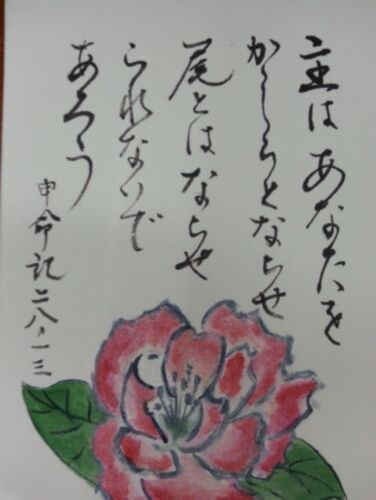 主はあなたを
かしらとならせ
尾とはならせ
られないで
あろう
申命記二八・一三